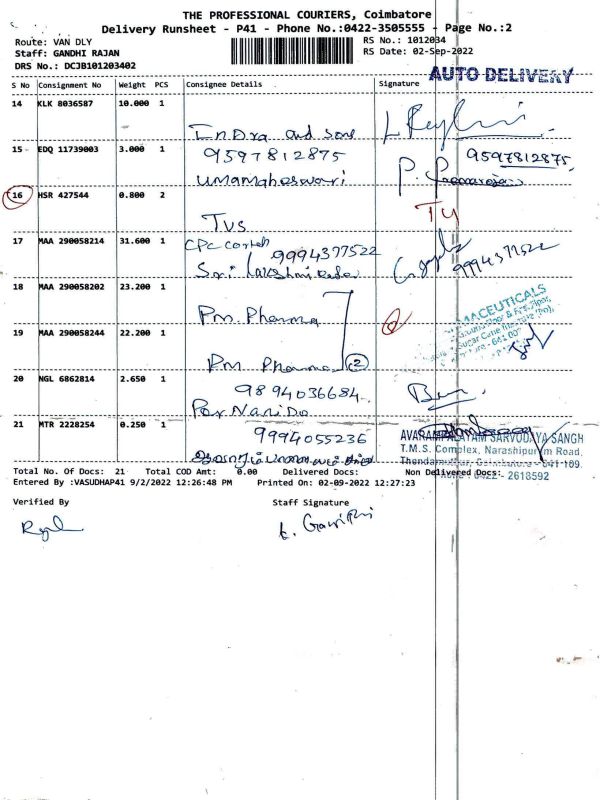 THE PROFESSIONAL COURIERS, Coimbatore
Delivery Runsheet - P41 - Phone No.:0422-3505555 - Page No.:2
Route: VAN DLY RS No.: 1012034
Staff: GANDHI RAJAN RS Date: 02-Sep-2022
DRS No.: DCJB101203402
AUTO DELIVERY
S No Consignment No Weight PCS Consignee Details Signature
14 KLK 8036587 10.000 1
Indra and sons
15 EDQ 11739003 3.000 1
9597812875 9597812875
umamaheswari
16 HSR 427544 0.800 2
TVS
17 MAA 290058214 31.600 1
CPC
9994377522 9994377522
Sri
18 MAA 290058202 23.200 1
Pm Pharma
MACEUTICALS
19 MAA 290058244 22.200 1
Pm Pharma 2
20 NGL 6862814 2.650 1
9894036684
21 MTR 2228254 0.250 1
9994055236
AVARAMPALAYAM SARVODAYA SANGH
T.M.S. Complex, Narashipuram Road,
Thondamuthur, Coimbatore - 641 109.
Phone : 0422 - 2618592
Total No. Of Docs: 21 Total COD Amt: 0.00 Delivered Docs: Non Delivered Docs:
Entered By :VASUDHAP41 9/2/2022 12:26:48 PM Printed On: 02-09-2022 12:27:23
Verified By Staff Signature